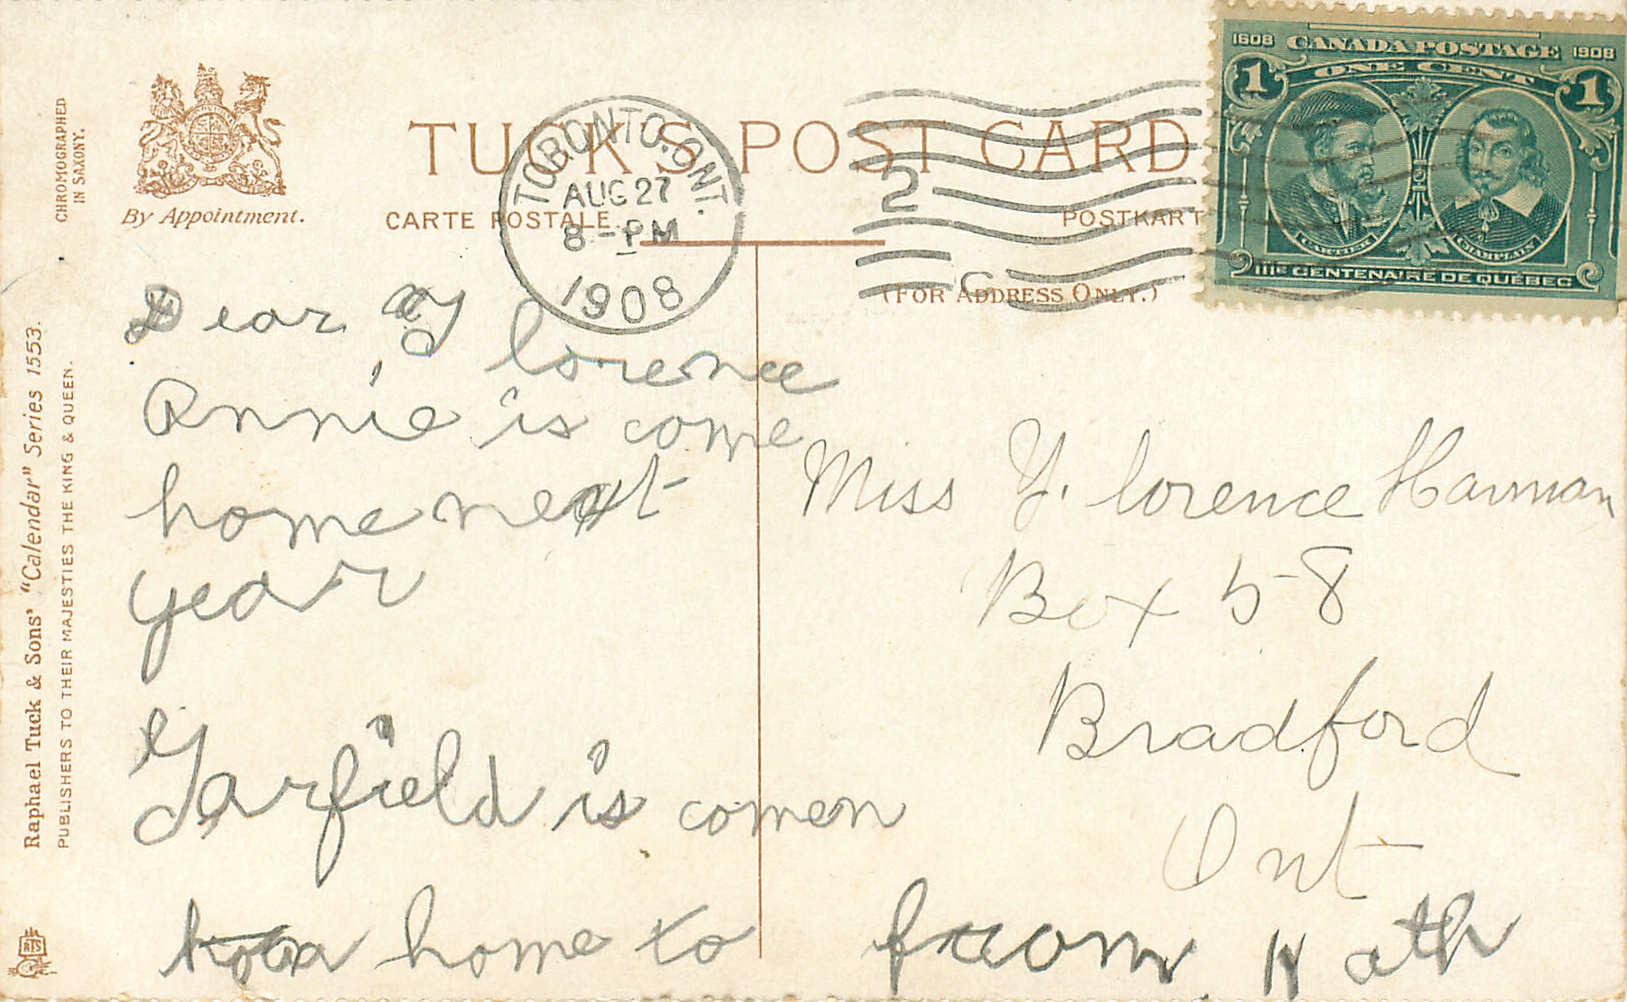 1608 CANADA POSTAGE 1908
1 ONE CENT 1
CARTIER CHAMPLAIN
IIIe CENTENAIRE DE QUÉBEC
TUCK'S POST CARD
By Appointment.
CARTE POSTALE.
POSTKART
(FOR ADDRESS ONLY.)
TORONTO. ONT.
AUG 27
8 - PM
1908
2
C
CHROMOGRAPHED
IN SAXONY.
Raphael Tuck & Sons' "Calendar" Series 1553.
PUBLISHERS TO THEIR MAJESTIES THE KING & QUEEN.
Dear
lorence
Annie is come
home next
year
Garfield is comen
home to
Miss Y. lorence Harman
Box 58
Bradford
Ont
from Nath